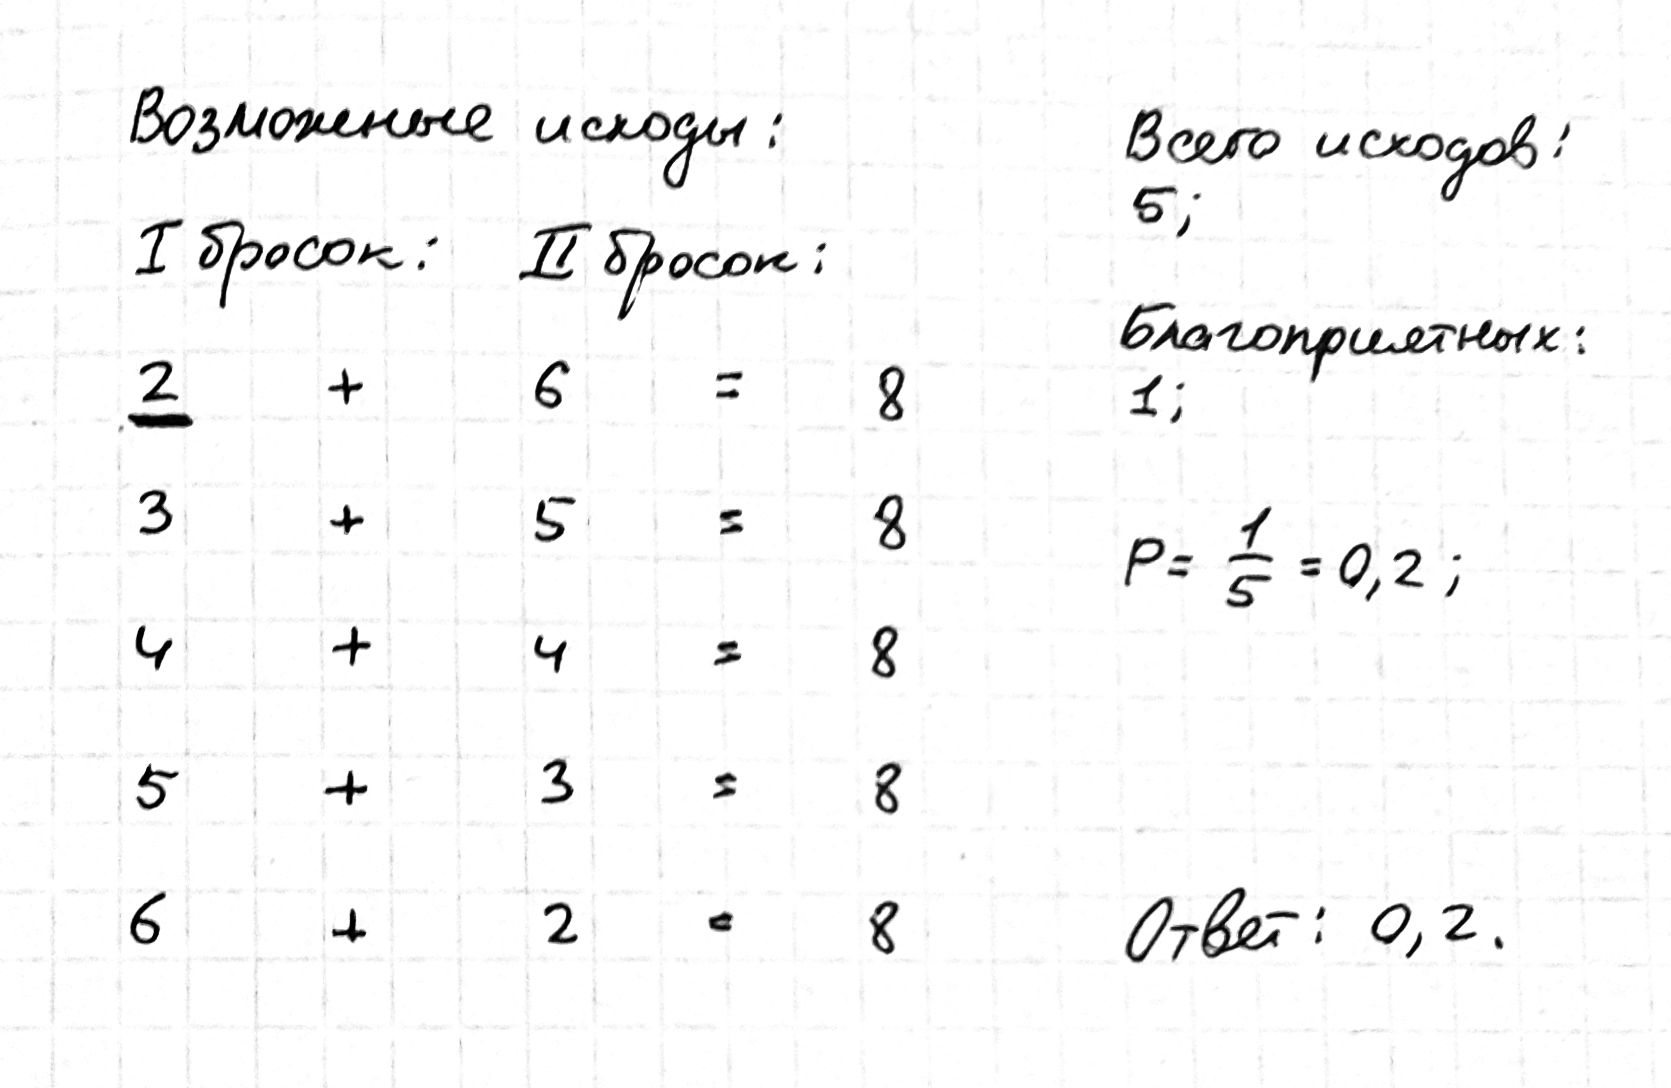 Возможные исходы:
I бросок: II бросок:
2 + 6 = 8
3 + 5 = 8
4 + 4 = 8
5 + 3 = 8
6 + 2 = 8
Всего исходов:
5;
Благоприятных:
1;
P = 1/5 = 0,2;
Ответ: 0,2.